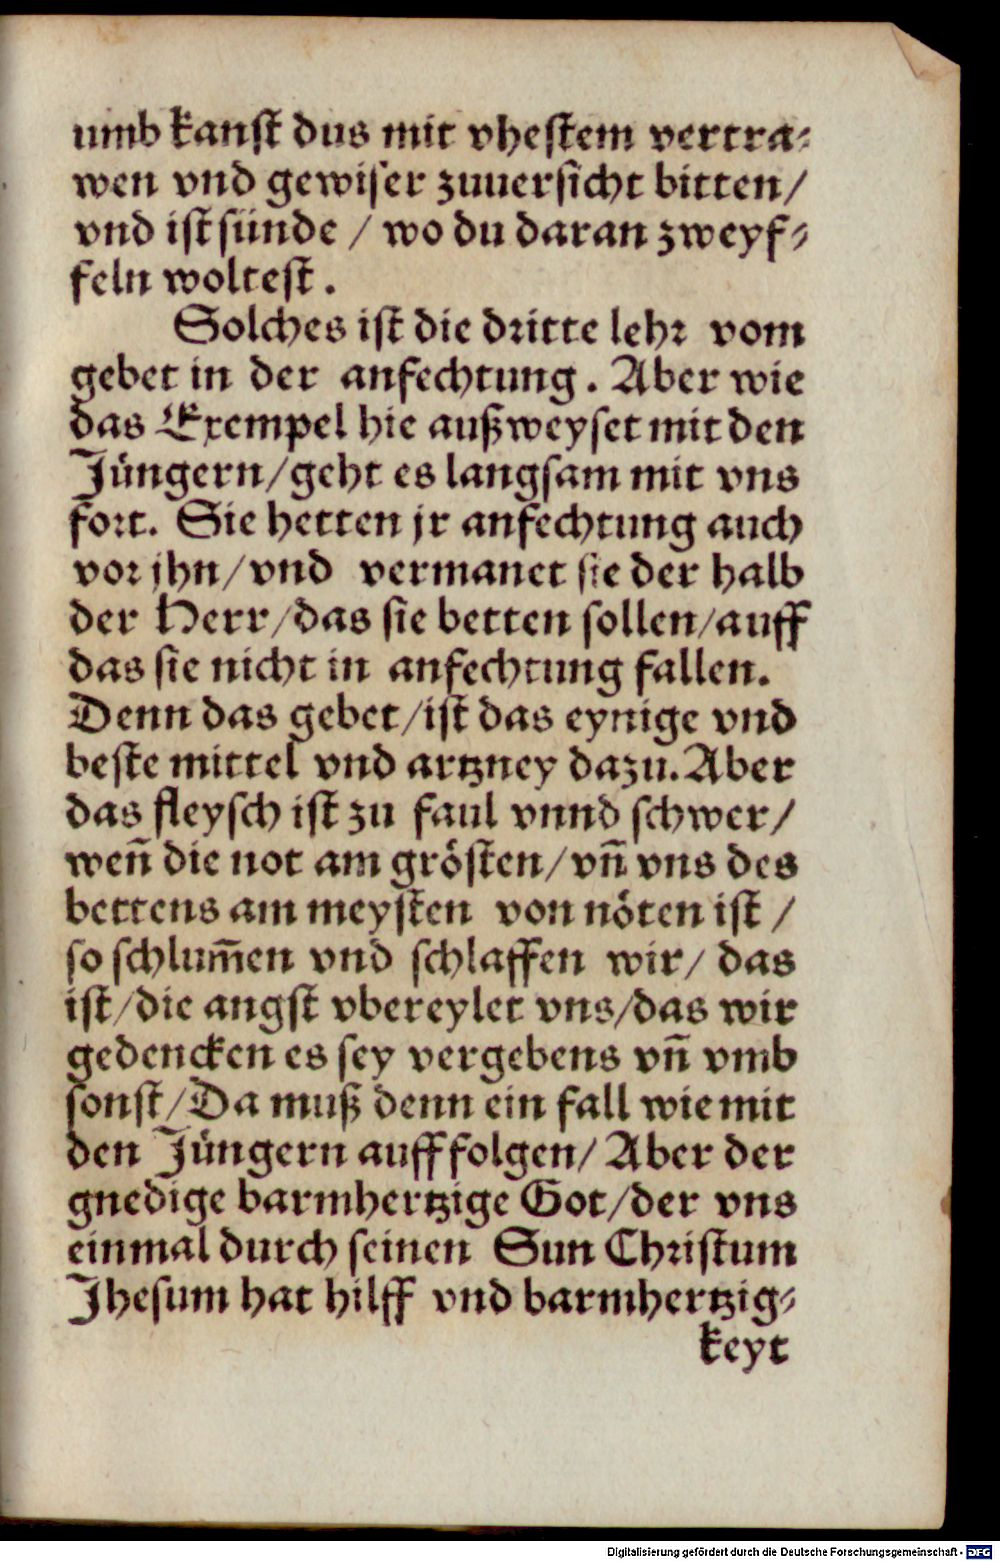 umb kanst dus mit vhestem vertra⸗
wen vnd gewiser zuuersicht bitten/
vnd ist sünde / wo du daran zweyf⸗
feln woltest .
Solches ist die dritte lehr vom
gebet in der anfechtung . Aber wie
das Exempel hie außweyset mit den
Jüngern/geht es langsam mit vns
fort. Sie hetten jr anfechtung auch
vor jhn/vnd vermanet sie der halb
der Herr/das sie betten sollen/auff
das sie nicht in anfechtung fallen.
Denn das gebet/ist das eynige vnd
beste mittel vnd artzney dazu. Aber
das fleysch ist zu faul vnnd schwer/
weñ die not am grösten/vñ vns des
bettens am meysten von nöten ist /
so schlum̃en vnd schlaffen wir/ das
ist/die angst vbereylet vns/das wir
gedencken es sey vergebens vñ vmb
sonst/Da muß denn ein fall wie mit
den Jüngern auff folgen/ Aber der
gnedige barmhertzige Got/der vns
einmal durch seinen Sun Christum
Jhesum hat hilff vnd barmhertzig⸗
keyt
Digitalisierung gefördert durch die Deutsche Forschungsgemeinschaft - DFG